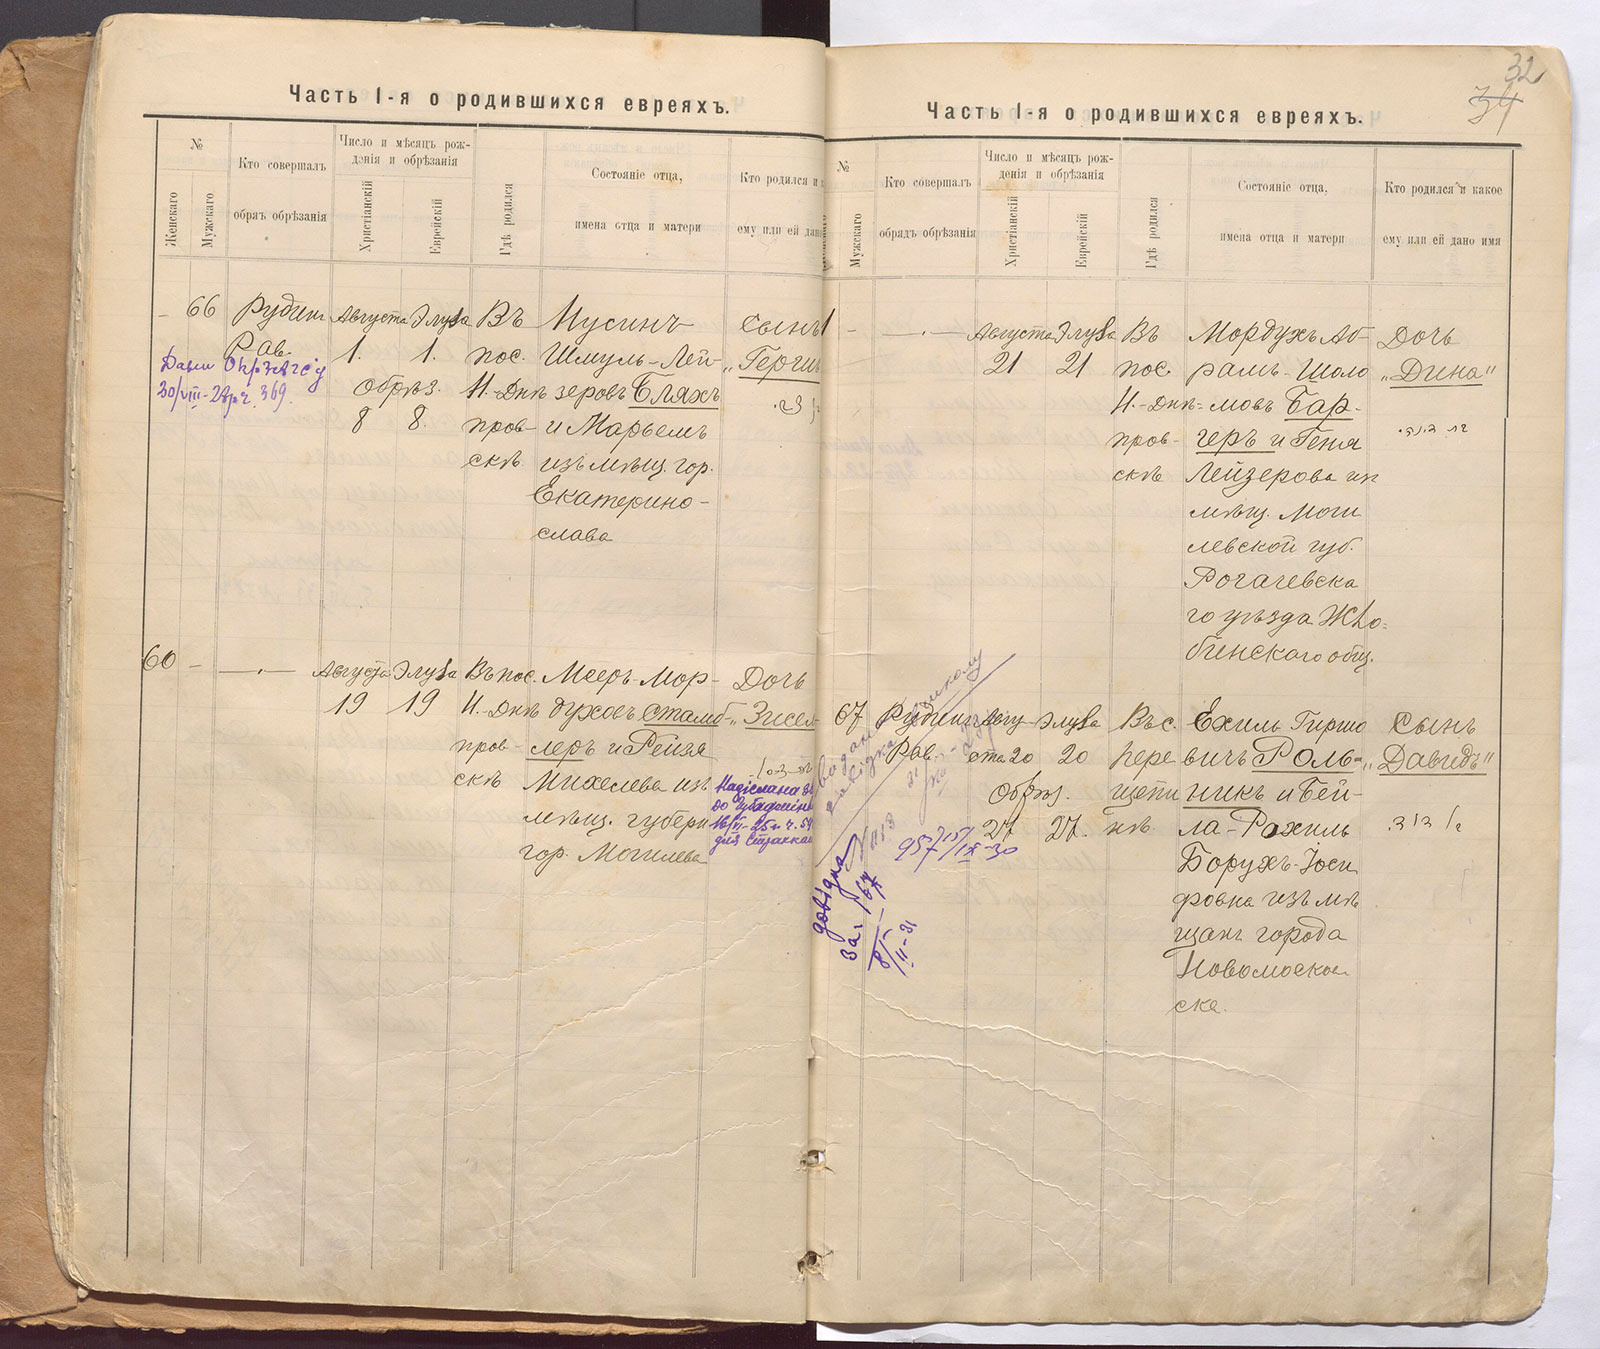 Часть I-я о родившихся евреяхъ.
№
Женскаго
Мужскаго
Кто совершалъ
обрядъ обрѣзанія
Число и мѣсяцъ рож-
денія и обрѣзанія
Христіанскій
Еврейскій
Гдѣ родился
Состояніе отца,
имена отца и матери
Кто родился и
ему или ей дано
66
Рудин
Рав.
Августа
1.
Обрѣз.
8
Элула
1.
8.
Въ
пос.
Н.-Днѣ
пров-
скѣ
Мусинъ
Шмуль-Лей-
зеровъ Бляхъ
и Марьемъ
изъ мѣщ. гор.
Екатерино-
слава
Сынъ
30/VIII-28 р. ч. 369.
60
Августа
19
Элула
19
Въ пос.
Н.-Днѣ
пров-
скѣ
Мееръ-Мор-
духовъ Стамб-
леръ и Рейзя
Михелева изъ
мѣщ. губерн
гор. Могилева
Дочь
„Зисел
Надіслана
16/VI-25 р. ч. 54
для
32
34
Часть I-я о родившихся евреяхъ.
№
Мужскаго
Кто совершалъ
обрядъ обрѣзанія
Число и мѣсяцъ рож-
денія и обрѣзанія
Христіанскій
Еврейскій
Гдѣ родился
Состояніе отца,
имена отца и матери
Кто родился и какое
ему или ей дано имя
Августа
21
Элула
21
Въ
пос.
Н.-Днѣ-
пров-
скѣ
Мордухъ Аб-
рамъ-Шоло
мовъ Бар-
геръ и Геня
Лейзерова из
мѣщ. Моги
левской губ.
Рогачевска
го уѣзда Жло-
бинскаго общ.
Дочь
„Дина"
67
Рудин
Рав.
Авгу-
ста 20
Обрѣз.
27
Элула
20
27.
Въ с.
Пере
щепи
нѣ
Ехиль Гиршо
вичъ Роль-
никъ и Бей-
ла-Рохиль
Борухъ-Іоси
фовна изъ мѣ
щанъ города
Новомоско
ска.
Сынъ
„Давидъ"
довідка
за ч. 167
8/II-31
957 15/IX-30